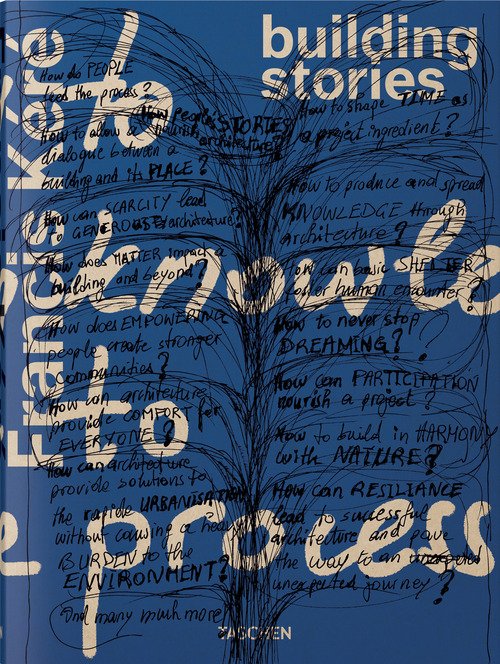 building
stories
Francis Kéré
How do PEOPLE
feed the process?
How people's STORIES
nourish
architecture?
How to allow a
dialogue between a
building and its PLACE?
How can SCARCITY lead
to GENEROUS architecture?
How does MATTER impact a
building and beyond?
How does EMPOWERING
people create stronger
communities?
How can architecture
provide COMFORT for
EVERYONE?
How can architecture
provide solutions to
the rapide URBANISATION
without causing a heavy
BURDEN to the
ENVIRONMENT?
And many much more
How to shape TIME as
a project ingredient?
How to produce and spread
KNOWLEDGE through
architecture?
How can basic SHELTER
foster human encounter?
How to never stop
DREAMING?
How can PARTICIPATION
nourish a project?
How to build in HARMONY
with NATURE?
How can RESILIANCE
lead to successful
architecture and pave
the way to an
unexpected journey?
knowle
to
e process
TASCHEN